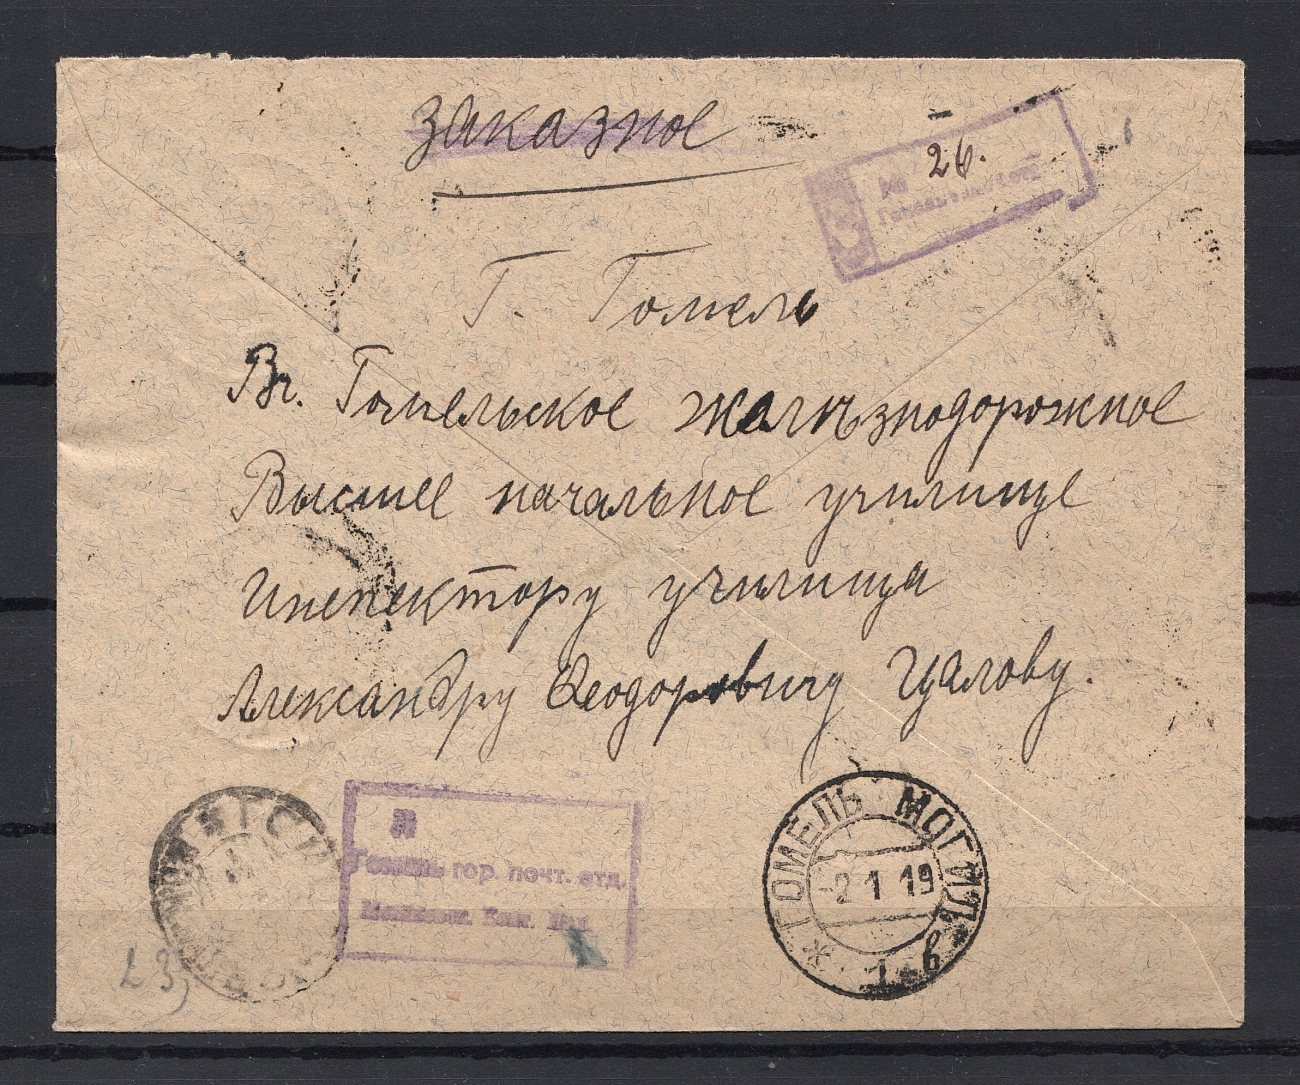 Заказное
№ 26.
Г. Гомель
Вг. Гомельское желѣзнодорожное
Высшее начальное училище
Инспектору училища
Александру Ѳеодоровичу Цалову.
Гомель гор. почт. отд.
ГОМЕЛЬ МОГИЛ.
-2 1 19
* 1 в